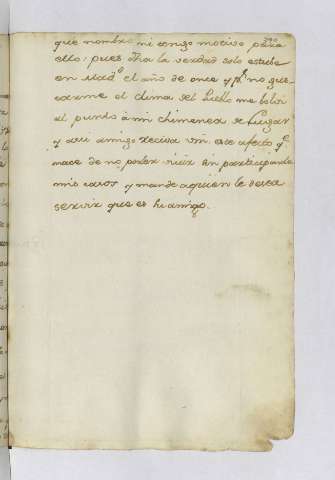 390
que nombro ni tengo motivo para
ello, pues dha la verdad solo estube
en Madᵈ. el año de once y pʳ. no que
earme el clima del Pueblo me bolvi
al punto à mi chimenea de Lugar
y assi amigo reciva vm. este afecto qᵉ
nace de no poder vivir sin participarle
mis casos y mande a quien le desea
servir que es su amigo.